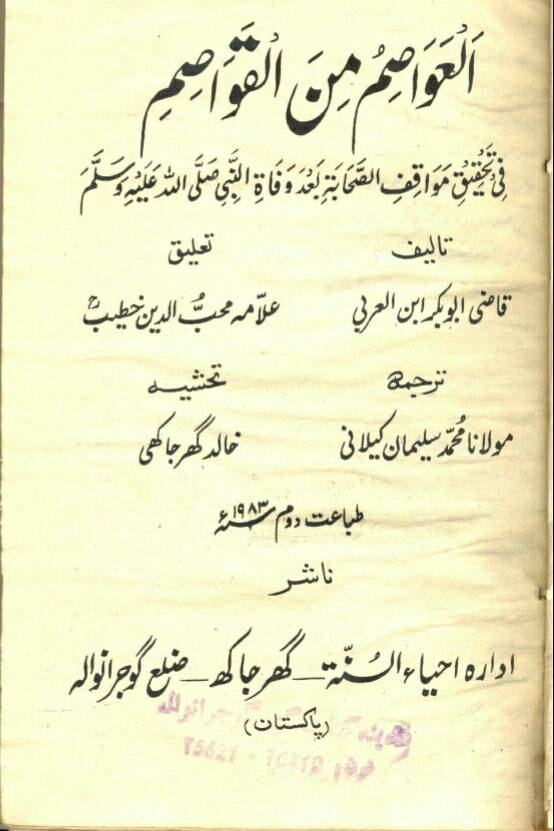 اَلْعَوَاصِمُ مِنَ الْقَوَاصِمِ
فِي تَحْقِيْقِ مَوَاقِفِ الصَّحَابَةِ بَعْدَ وَفَاةِ النَّبِيِّ صَلَّى اللهُ عَلَيْهِ وَسَلَّمَ
تالیف تعلیق
قاضی ابوبکر ابن العربی علّامہ محبُّ الدین خطیبؒ
ترجمہ تحشیہ
مولانا مُحمّد سلیمان کیلانی خالد گھرجاکھی
طباعت دوم ۱۹۸۳ء
ناشر
ادارہ احیاء السُنّۃ — گھرجاکھ — ضلع گوجرانوالہ
(پاکستان)